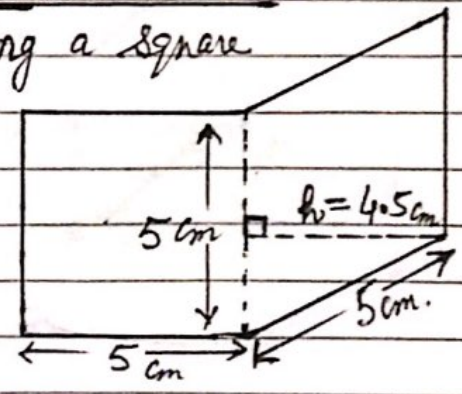 ng a square
h = 4.5cm
5 cm
5cm.
5 cm